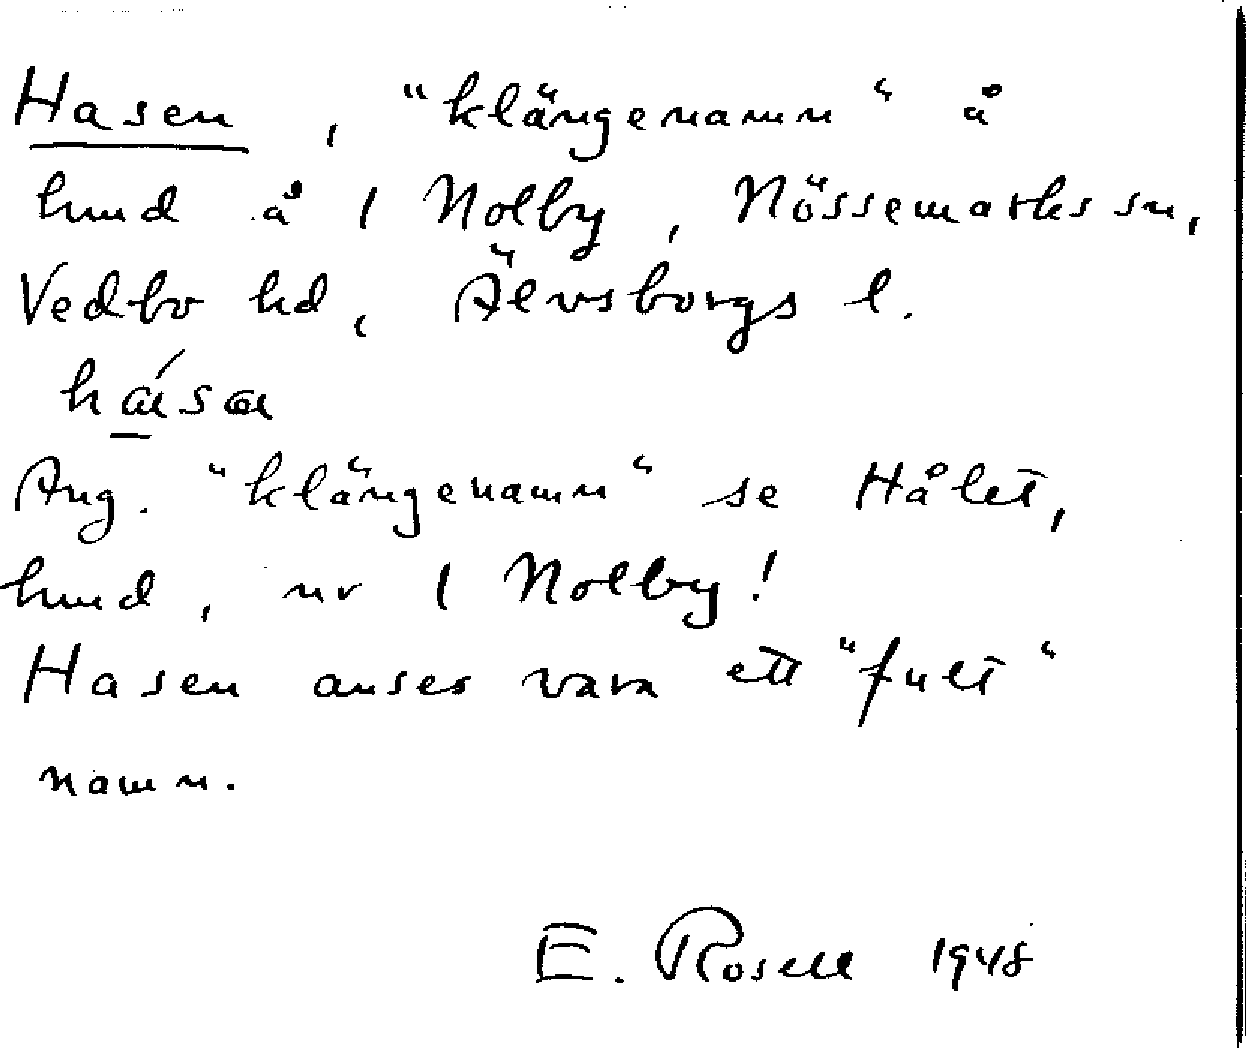 Hasen, "klängenamn" å
hmd å 1 Nolby, Nössemarks sn,
Vedbo hd, Älvsborgs l.
Ang. "klängenamn" se Hålet,
hmd, nr 1 Nolby!
Hasen anses vara ett "fult"
namn.
E. Rosell 1948